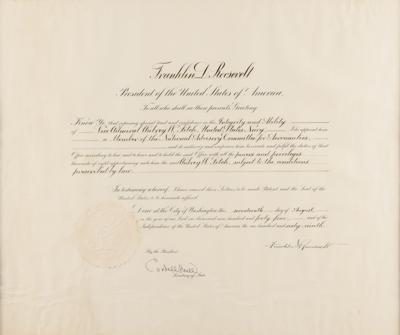 Franklin D. Roosevelt
President of the United States of America.
To all who shall see these presents, Greeting:
Know Ye, that reposing special trust and confidence in the Integrity and Ability
of Vice Admiral Aubrey W. Fitch, United States Navy, I do appoint him
a Member of the National Advisory Committee for Aeronautics,
and do authorize and empower him to execute and fulfil the duties of that
Office according to law, and to have and to hold the said Office with all the powers and privileges
thereunto of right appertaining unto him the said Aubrey W. Fitch, subject to the conditions
prescribed by law.
In testimony whereof, I have caused these Letters to be made Patent and the Seal of the
United States to be hereunto affixed.
Done at the City of Washington this seventeenth day of August,
in the year of our Lord one thousand nine hundred and forty four, and of the
Independence of the United States of America the one hundred and sixty-ninth.
Franklin D Roosevelt
By the President:
Cordell Hull
Secretary of State.